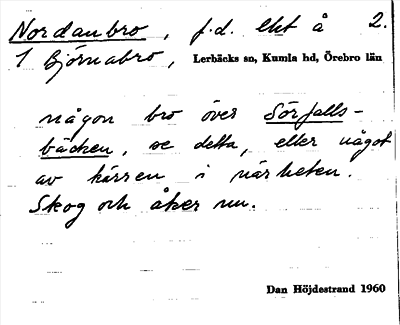 Nordanbro, f.d. lht å 2.
1 Björnabro, Lerbäcks sn, Kumla hd, Örebro län
någon bro över Sörfalls-
bäcken, se detta, eller något
av kärren i närheten.
Skog och åker nu.
Dan Höjdestrand 1960